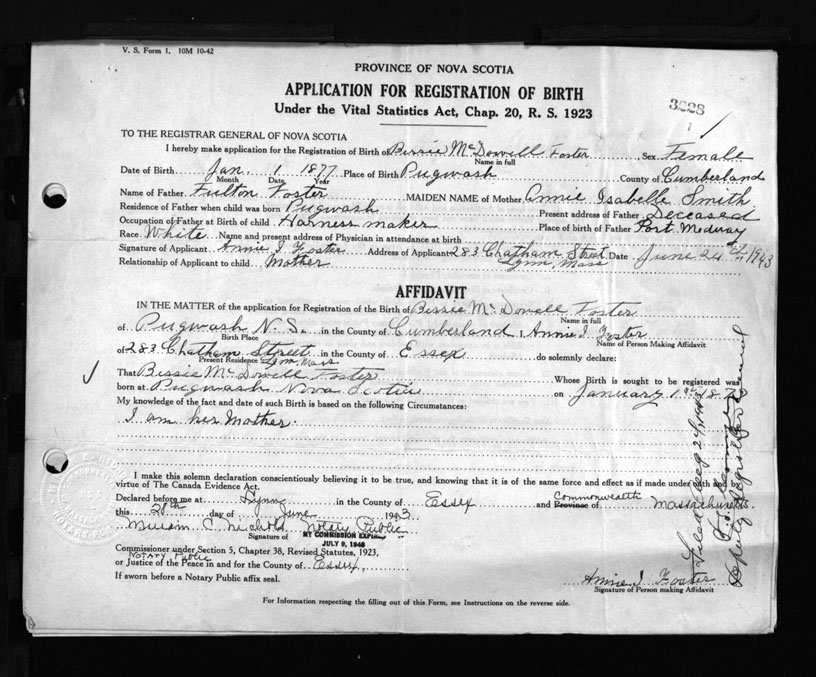 V. S. Form 1. 10M 10-42
PROVINCE OF NOVA SCOTIA
APPLICATION FOR REGISTRATION OF BIRTH
Under the Vital Statistics Act, Chap. 20, R. S. 1923
TO THE REGISTRAR GENERAL OF NOVA SCOTIA
I hereby make application for the Registration of Birth of Bessie McDowell Foster Sex Female
Name in full
Date of Birth Jan. 1 1877 Place of Birth Pugwash County of Cumberland
Month Date Year
Name of Father Fulton Foster MAIDEN NAME of Mother Annie Isabelle Smith
Residence of Father when child was born Pugwash Present address of Father Deceased
Occupation of Father at Birth of child Harness maker Place of birth of Father Port Medway
Race White Name and present address of Physician in attendance at birth
Signature of Applicant Annie I Foster Address of Applicant 283 Chatham Street Lynn, Mass Date June 24 1943
Relationship of Applicant to child Mother
AFFIDAVIT
IN THE MATTER of the application for Registration of the Birth of Bessie McDowell Foster
Name in full
of Pugwash N.S. in the County of Cumberland I, Annie I. Foster
Birth Place Name of Person Making Affidavit
of 283 Chatham Street Lynn, Mass in the County of Essex do solemnly declare:
Present Residence
That Bessie McDowell Foster Whose Birth is sought to be registered was
born at Pugwash Nova Scotia on January 1st 187
My knowledge of the fact and date of such Birth is based on the following Circumstances:
I am her Mother.
I make this solemn declaration conscientiously believing it to be true, and knowing that it is of the same force and effect as if made under oath and by
virtue of The Canada Evidence Act.
Declared before me at Lynn in the County of Essex and Province of Commonwealth Massachusetts
this 28th day of June 1943
Miriam C. Nichols Notary Public
Signature of MY COMMISSION EXPIRES
JULY 9, 1948
Commissioner under Section 5, Chapter 38, Revised Statutes, 1923,
Notary Public
or Justice of the Peace in and for the County of Essex
If sworn before a Notary Public affix seal.
Annie I. Foster
Signature of Person making Affidavit
For Information respecting the filling out of this Form, see Instructions on the reverse side.
Filed
Deputy Registrar General